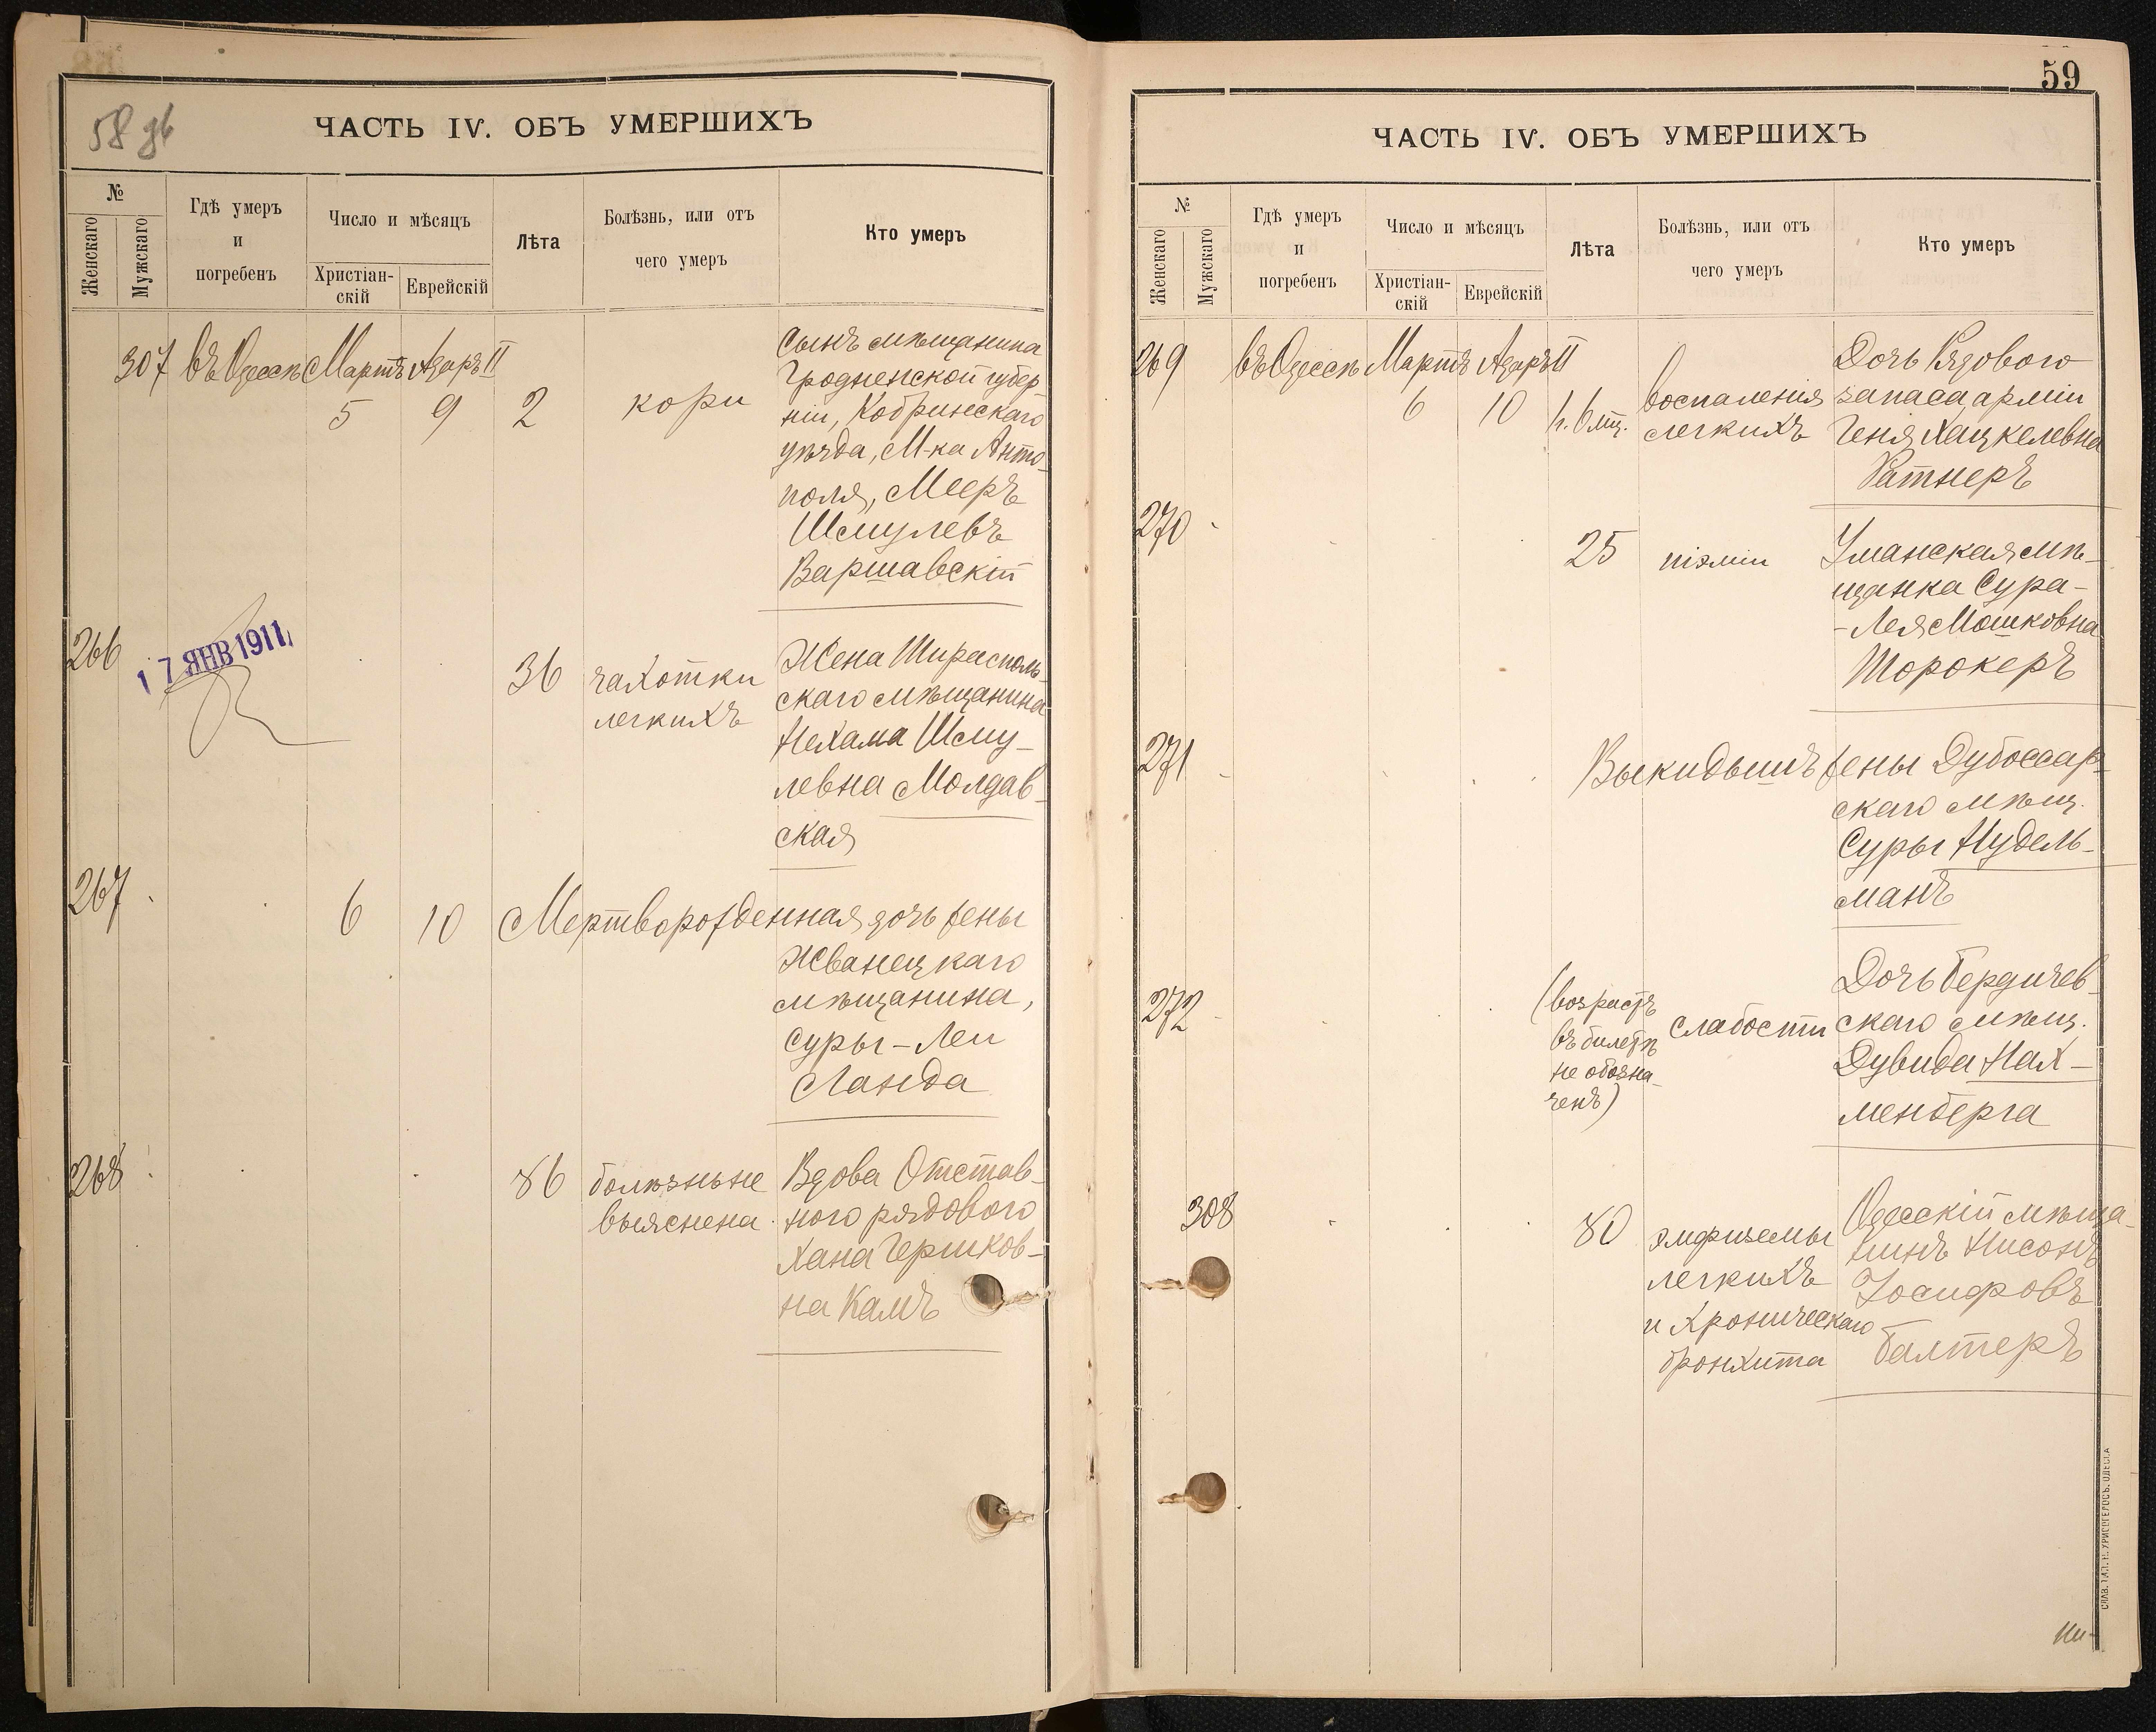 58 зв
ЧАСТЬ IV. ОБЪ УМЕРШИХЪ
№
Женскаго
Мужскаго
Гдѣ умеръ
и
погребенъ
Число и мѣсяцъ
Христіан-
скій
Еврейскій
Лѣта
Болѣзнь, или отъ
чего умеръ
Кто умеръ
307 въ Одессѣ Мартъ Адаръ II
5 9 2 кори
Сынъ мѣщанина
Гродненской губер
ніи, Кобринскаго
уѣзда, М-ка Анто-
поля, Мееръ
Шмулевъ
Варшавскій
266
17 ЯНВ 1911
36 чахотки
легкихъ
Жена Тирасполь-
скаго мѣщанина
Нехама Шму-
левна Молдав-
ская
267 6 10 Мертворожденная дочь жены
Жванецкаго
мѣщанина,
Суры-Леи
Ланда
268 86 болѣзнь не
выяснена
Вдова Отстав-
ного рядового
Хана Гершков-
на Камъ
59
ЧАСТЬ IV. ОБЪ УМЕРШИХЪ
№
Женскаго
Мужскаго
Гдѣ умеръ
и
погребенъ
Число и мѣсяцъ
Христіан-
скій
Еврейскій
Лѣта
Болѣзнь, или отъ
чего умеръ
Кто умеръ
269 въ Одессѣ Мартъ Адаръ II
6 10 1г. 6 мц. воспаленія
легкихъ
Дочь Рядового
запаса арміи
Геня Хацкелевна
Ратнеръ
270
25 піэміи
Уманская мѣ-
щанка Сура-
-Лея Мошковна
Торокеръ
271
Выкидышъ жены Дубоссар-
скаго мѣщ.
Суры Нудель-
манъ
272
(возрастъ
въ билетѣ
не обозна-
ченъ)
слабости
Дочь Бердичев-
скаго мѣщ.
Дувида Нах-
менберга
308
80 эмфиземы
легкихъ
и хроническаго
бронхита
Одесскій мѣща-
нинъ Нисонъ
Іосифовъ
Балтеръ
СЛАВ. ТИП. Н. ХРИСОГЕЛОСЪ, ОДЕССА